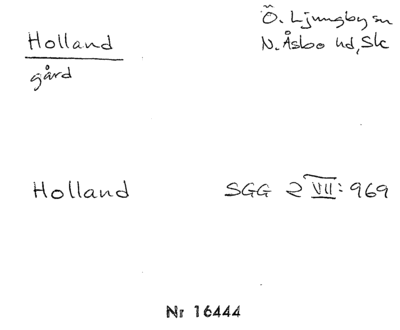 Holland
gård
Ö. Ljungby sn
N. Åsbo hd, Sk
Holland
SGG 2 VII: 969
Nr 16444